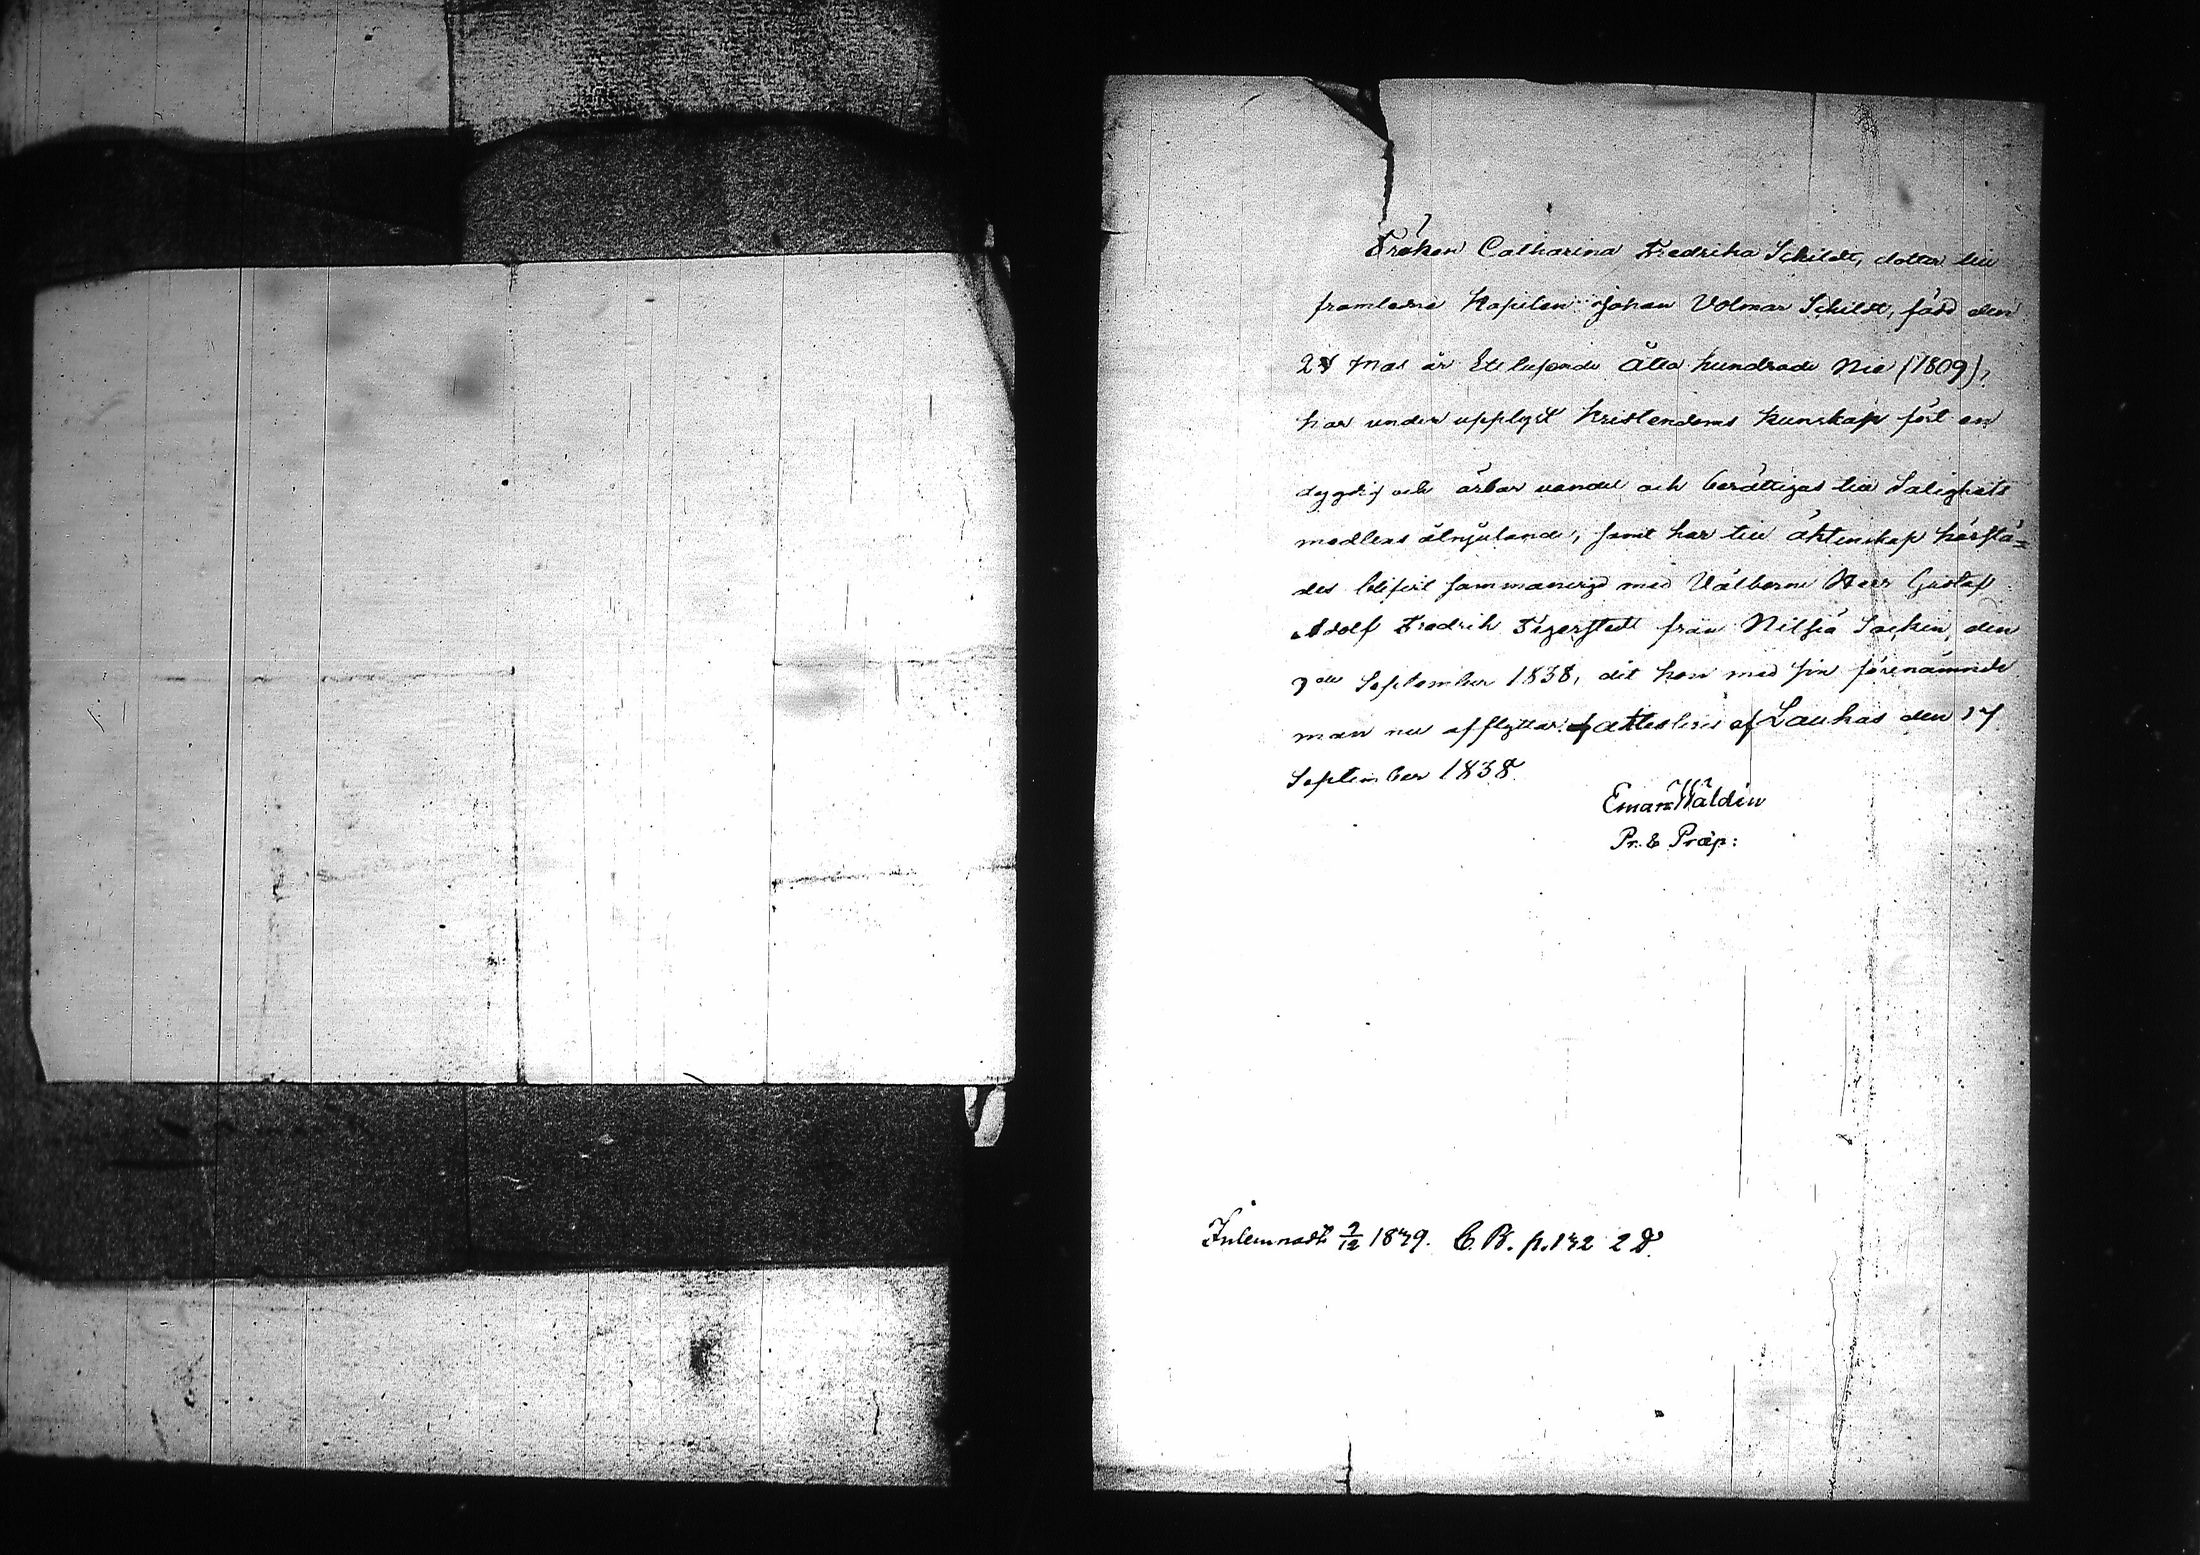 Fröken Catharina Fredrika Schildt, dotter till
framledne Kapiten Johan Volmar Schildt, född den
Maj år Ett tusende Åtta hundrade Nie (1809),
har under upplyst Kristendoms kunskap fört en
dygdig och ärbar vandel och berättigas till Salighets
medlens åtnjutande, samt har till äktenskap härstä=
des blifvit sammanvigd med Välborne Herr Gustaf
Adolf Fredrik Tigerstedt från Nilsiä Socken, den
September 1838, dit hon med sin förenämnde
man nu afflyttar. attesteras af Laukas den 17
September 1838.
Eman Wäldin
Pr. & Præp:
Inlemnadt 1839. C. B. p. 132